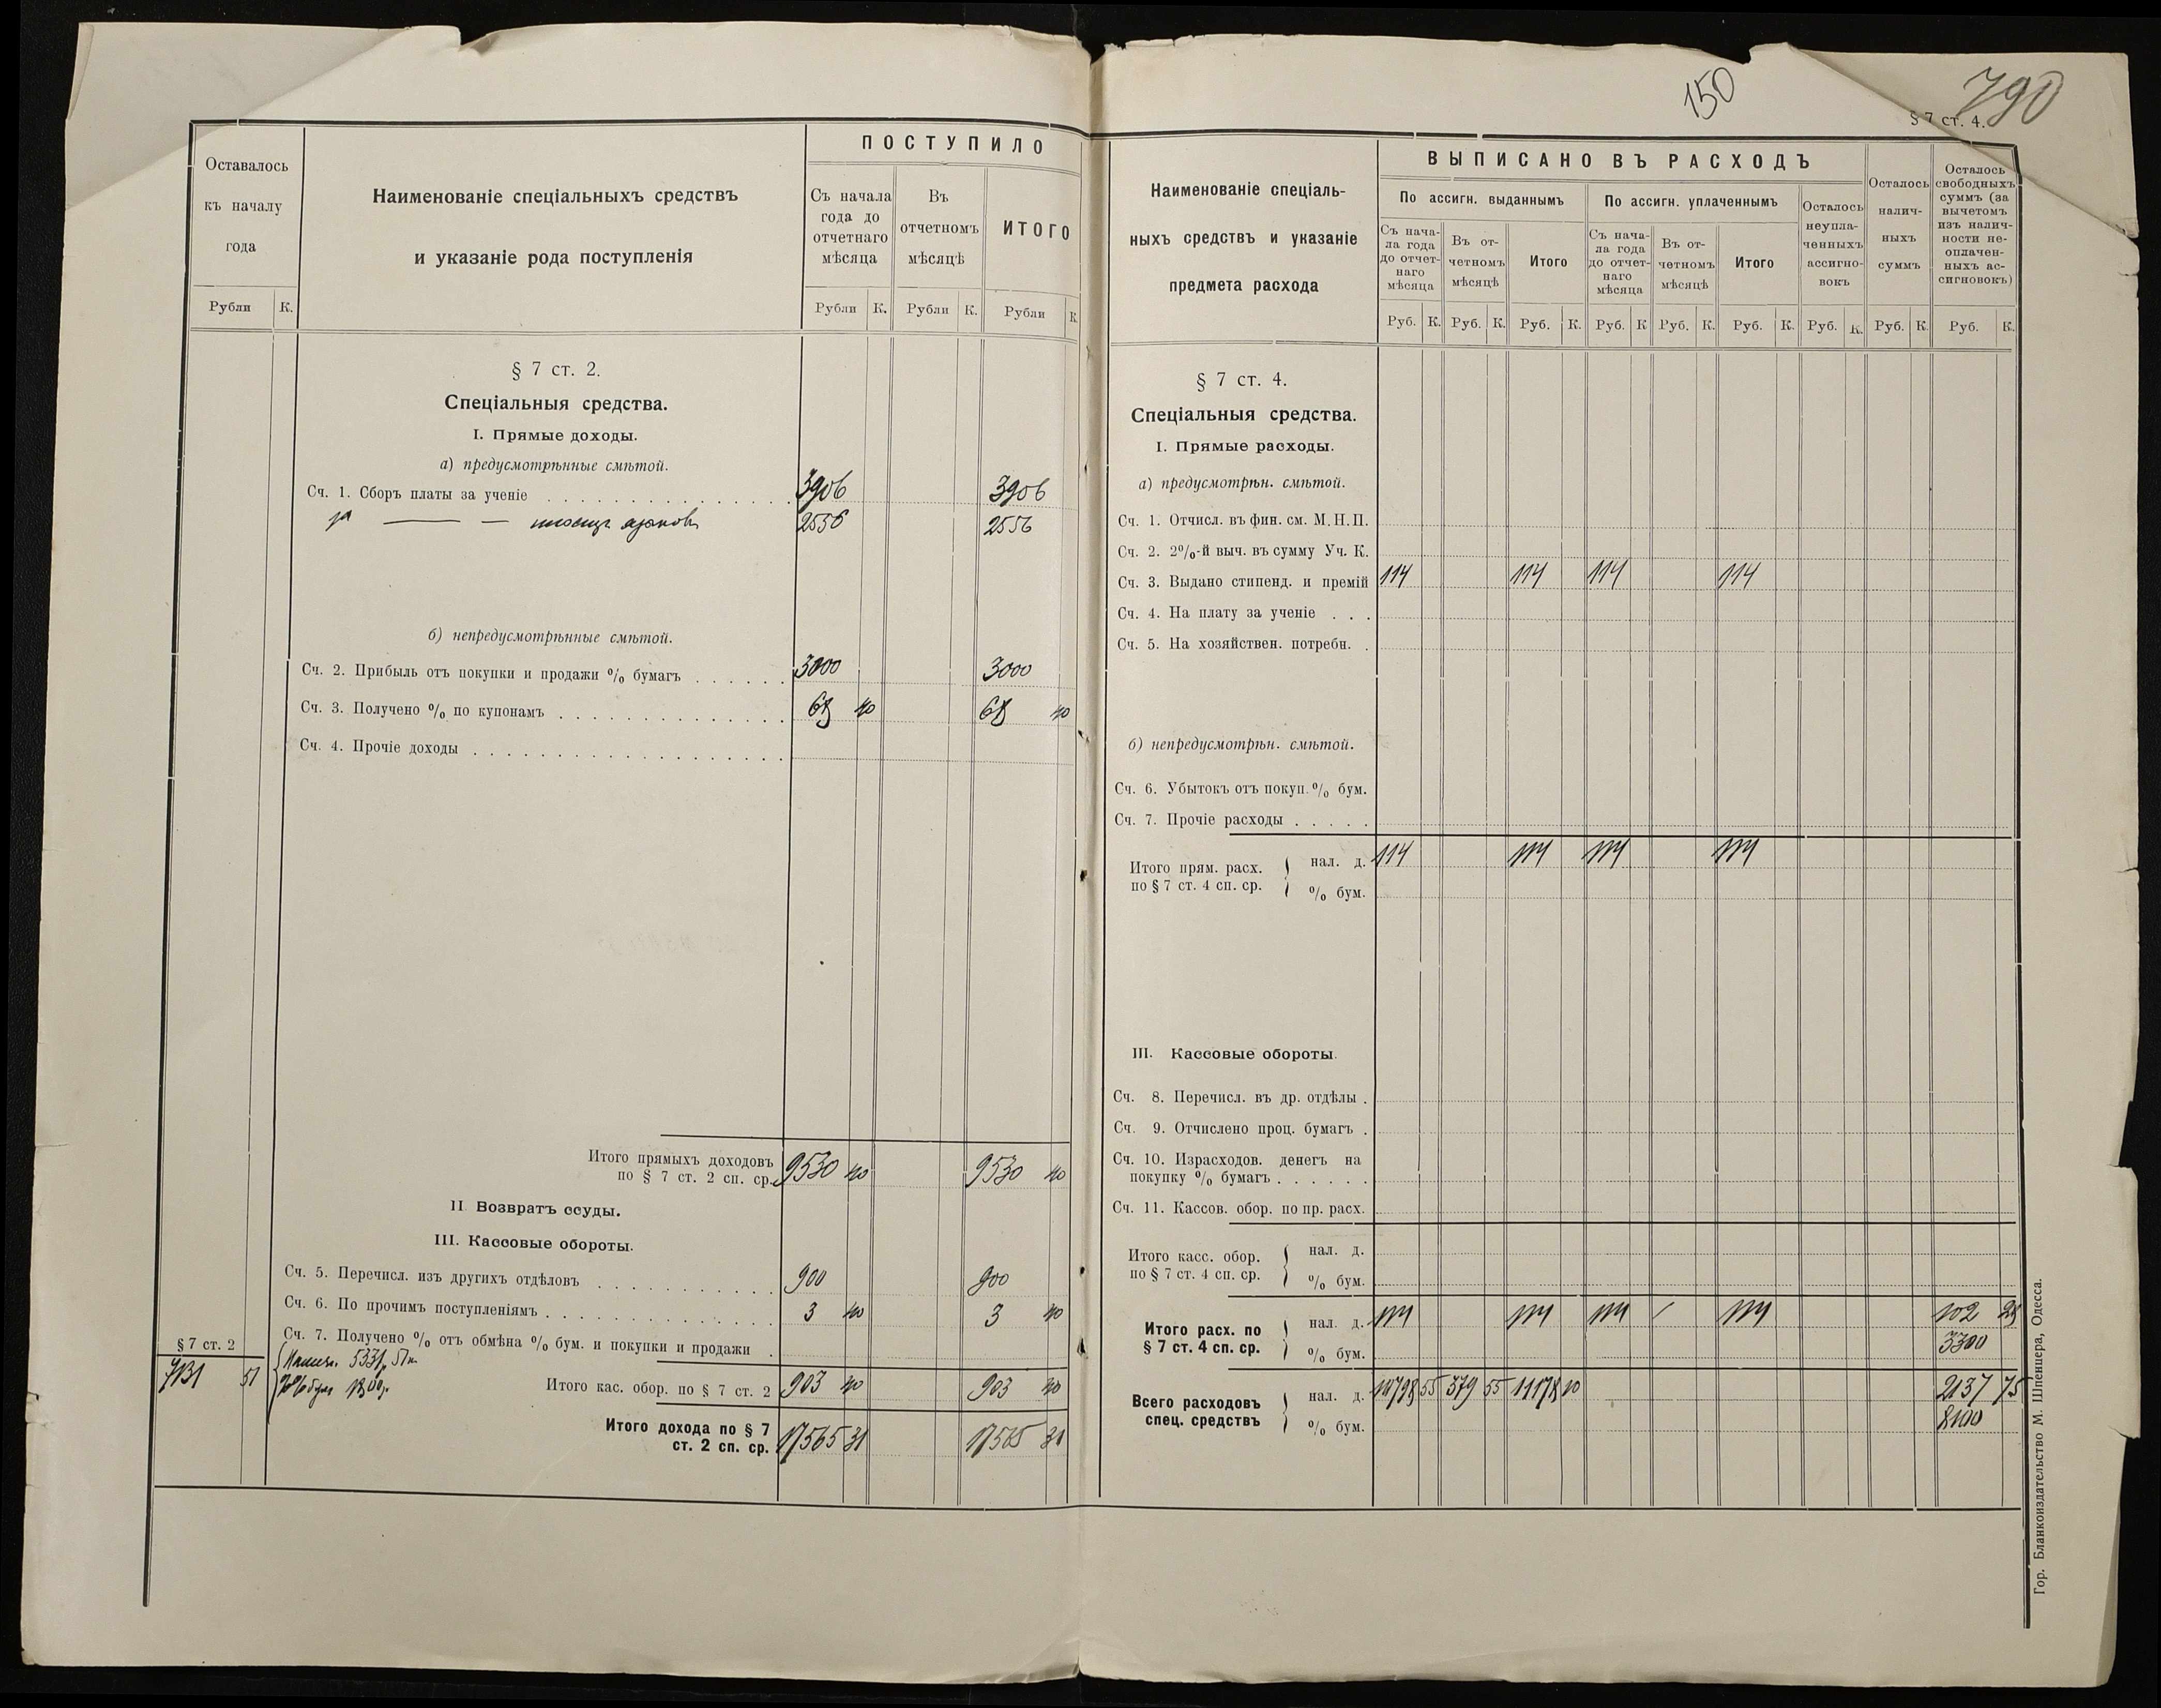 150
790
§ 7 ст. 4.
Оставалось
къ началу
года
Рубли К.
Наименованіе спеціальныхъ средствъ
и указаніе рода поступленія
ПОСТУПИЛО
Съ начала
года до
отчетнаго
мѣсяца
Въ
отчетномъ
мѣсяцѣ
ИТОГО
Рубли К. Рубли К. Рубли К.
§ 7 ст. 2.
Спеціальныя средства.
I. Прямые доходы.
а) предусмотрѣнные смѣтой.
Сч. 1. Сборъ платы за ученіе 3906 3906
за 2556 2556
б) непредусмотрѣнные смѣтой.
Сч. 2. Прибыль отъ покупки и продажи % бумагъ 3000 3000
Сч. 3. Получено % по купонамъ 68 40 68 40
Сч. 4. Прочіе доходы
Итого прямыхъ доходовъ
по § 7 ст. 2 сп. ср. 9530 40 9530 40
II Возвратъ ссуды.
III. Кассовые обороты.
Сч. 5. Перечисл. изъ другихъ отдѣловъ 900 900
Сч. 6. По прочимъ поступленіямъ 3 40 3 40
Сч. 7. Получено % отъ обмѣна % бум. и покупки и продажи
§ 7 ст. 2
7131 51
Наличн. 5331р. 51к.
%бумаг 1800р.
Итого кас. обор. по § 7 ст. 2 903 40 903 40
Итого дохода по § 7
ст. 2 сп. ср. 17565 31 17565 31
Наименованіе спеціаль-
ныхъ средствъ и указаніе
предмета расхода
ВЫПИСАНО ВЪ РАСХОДЪ
По ассигн. выданнымъ
По ассигн. уплаченнымъ
Съ нача-
ла года
до отчет-
наго
мѣсяца
Въ от-
четномъ
мѣсяцѣ
Итого
Съ нача-
ла года
до отчет-
наго
мѣсяца
Въ от-
четномъ
мѣсяцѣ
Итого
Осталось
неупла-
ченныхъ
ассигно-
вокъ
Осталось
налич-
ныхъ
суммъ
Осталось
свободныхъ
суммъ (за
вычетомъ
изъ налич-
ности не-
оплачен-
ныхъ ас-
сигновокъ)
Руб. К. Руб. К. Руб. К. Руб. К Руб. К. Руб. К. Руб. К. Руб. К. Руб. К.
§ 7 ст. 4.
Спеціальныя средства.
I. Прямые расходы.
а) предусмотрѣн. смѣтой.
Сч. 1. Отчисл. въ фин. см. М. Н. П.
Сч. 2. 2%-й выч. въ сумму Уч. К.
Сч. 3. Выдано стипенд. и премій 114 114 114 114
Сч. 4. На плату за ученіе
Сч. 5. На хозяйствен. потребн.
б) непредусмотрѣн. смѣтой.
Сч. 6. Убытокъ отъ покуп. % бум.
Сч. 7. Прочіе расходы
Итого прям. расх.
по § 7 ст. 4 сп. ср.
нал. д. 114 114 114 114
% бум.
III. Кассовые обороты.
Сч. 8. Перечисл. въ др. отдѣлы
Сч. 9. Отчислено проц. бумагъ
Сч. 10. Израсходов. денегъ на
покупку % бумагъ
Сч. 11. Кассов. обор. по пр. расх.
Итого касс. обор.
по § 7 ст. 4 сп. ср.
нал. д.
% бум.
Итого расх. по
§ 7 ст. 4 сп. ср.
нал. д. 114 114 114 114 102
% бум. 3300
Всего расходовъ
спец. средствъ
нал. д. 10798 55 379 55 11178 10 2137 75
% бум. 8100
Гор. Бланкоиздательство М. Шпенцера, Одесса.